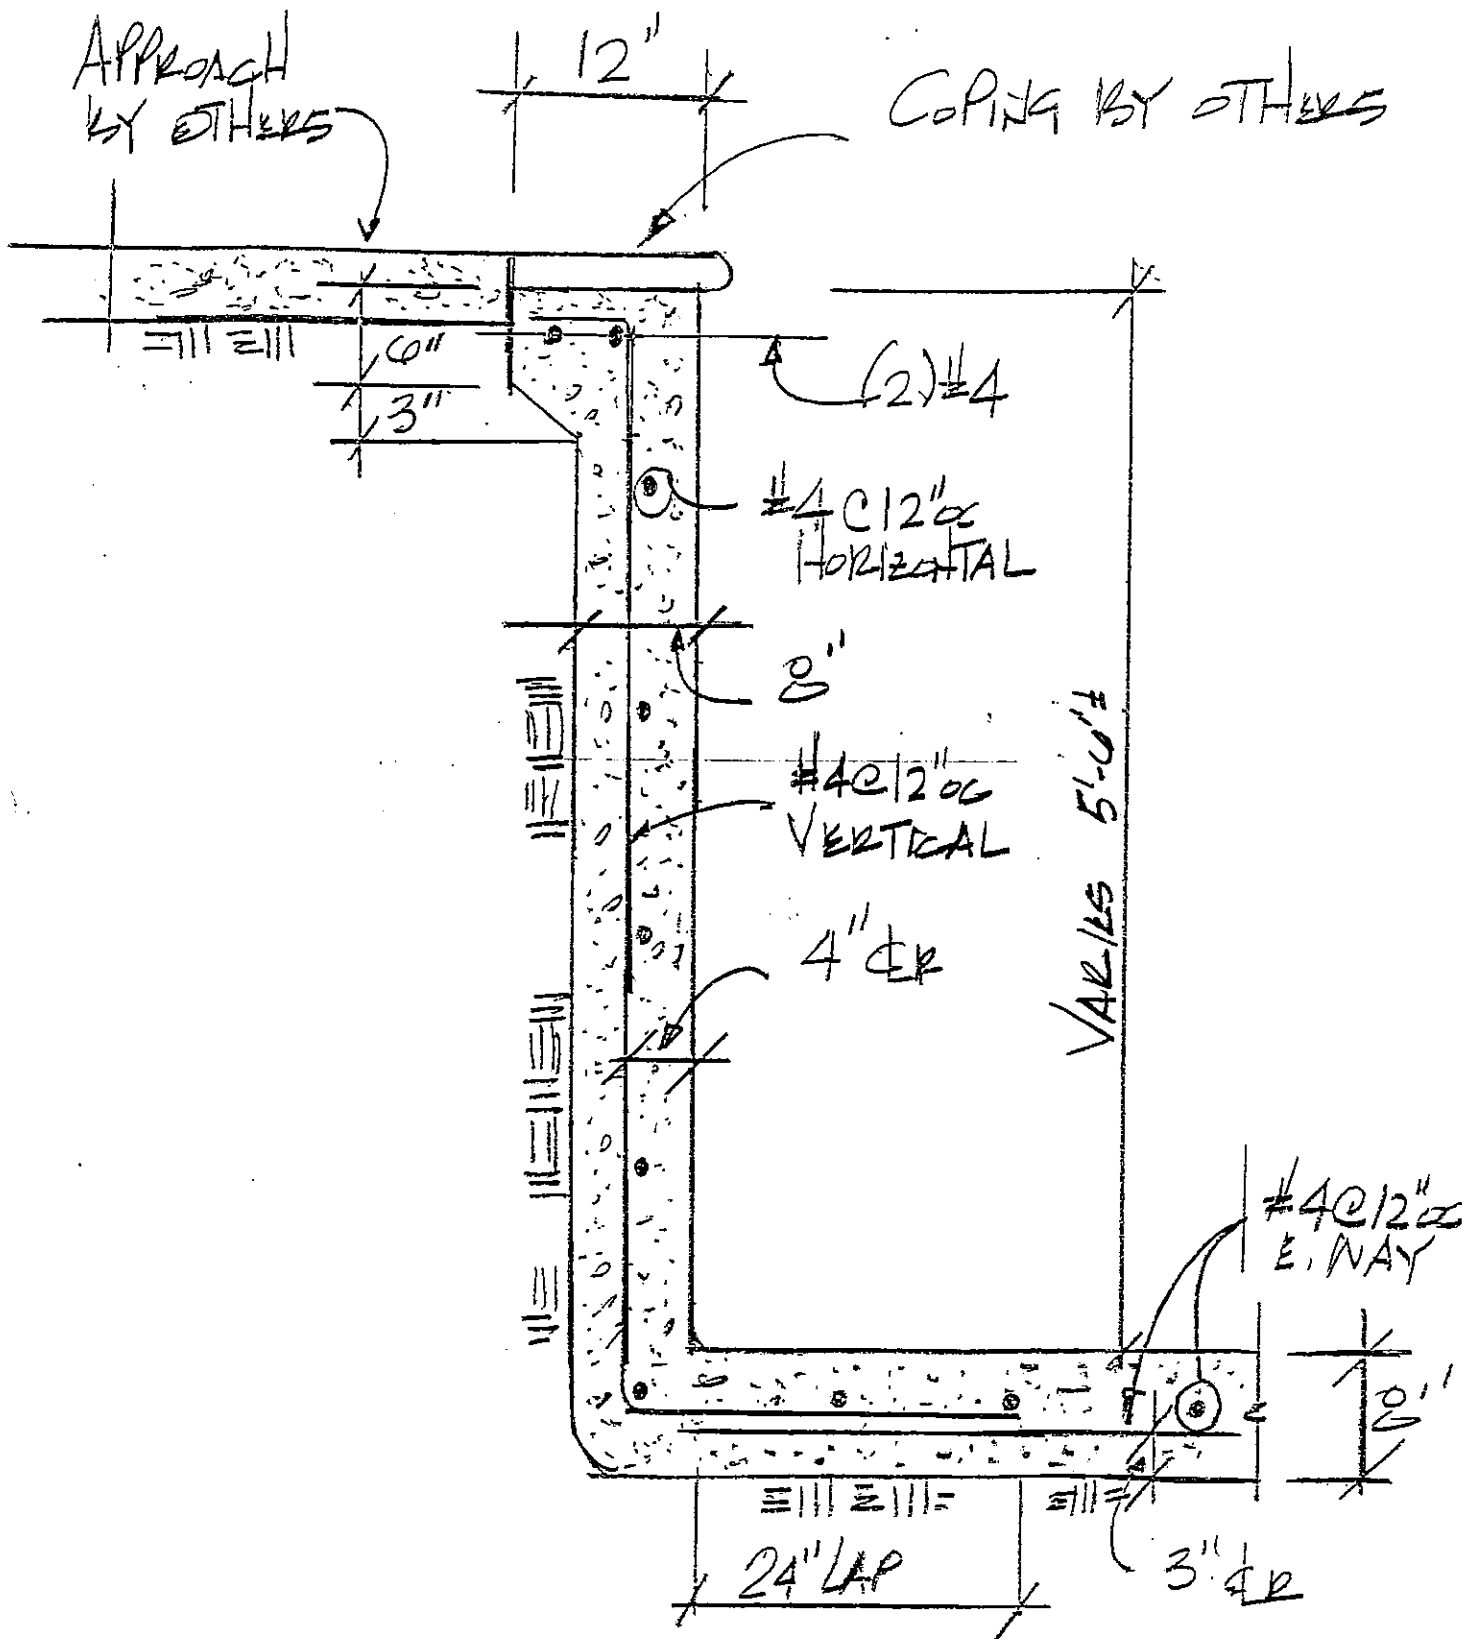 APPROACH
BY OTHERS
12"
COPING BY OTHERS
6"
3"
(2)#4
#4@12"oc
HORIZONTAL
8"
#4@12"oc
VERTICAL
4" CLR
VARIES 5'-6"±
#4@12"oc
E. WAY
8"
24" LAP
3" CLR